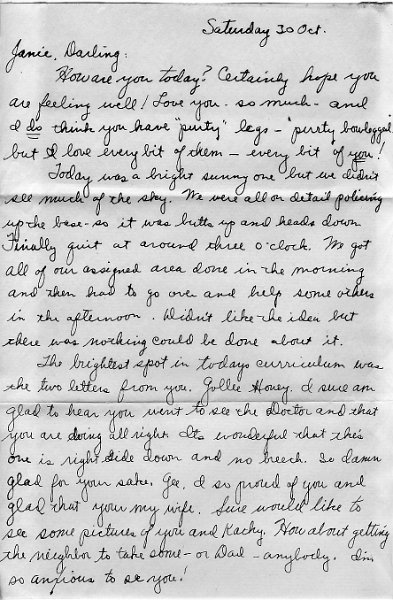 Saturday 30 Oct.
Janie, Darling:
How are you today? Certainly hope you
are feeling well! Love you - so much - and
I do think you have "purty" legs - "purty bowlegged"
but I love every bit of them - every bit of you!
Today was a bright sunny one but we didn't
see much of the sky. We were all on detail policing
up the base - so it was butts up and heads down
Finally quit at around three o'clock. We got
all of our assigned area done in the morning
and then had to go over and help some others
in the afternoon. Didn't like the idea but
there was nothing could be done about it.
The brightest spot in todays curriculum was
the two letters from you. Gollie Honey. I sure am
glad to hear you went to see the Doctor and that
you are doing all right. Its wonderful that this
one is right side down and no breech. So damn
glad for your sake. Gee, I so proud of you and
glad that your my wife. Sure would like to
see some pictures of you and Kacky. How about getting
the neighbor to take some - or Dad - anybody. I'm
so anxious to see you!